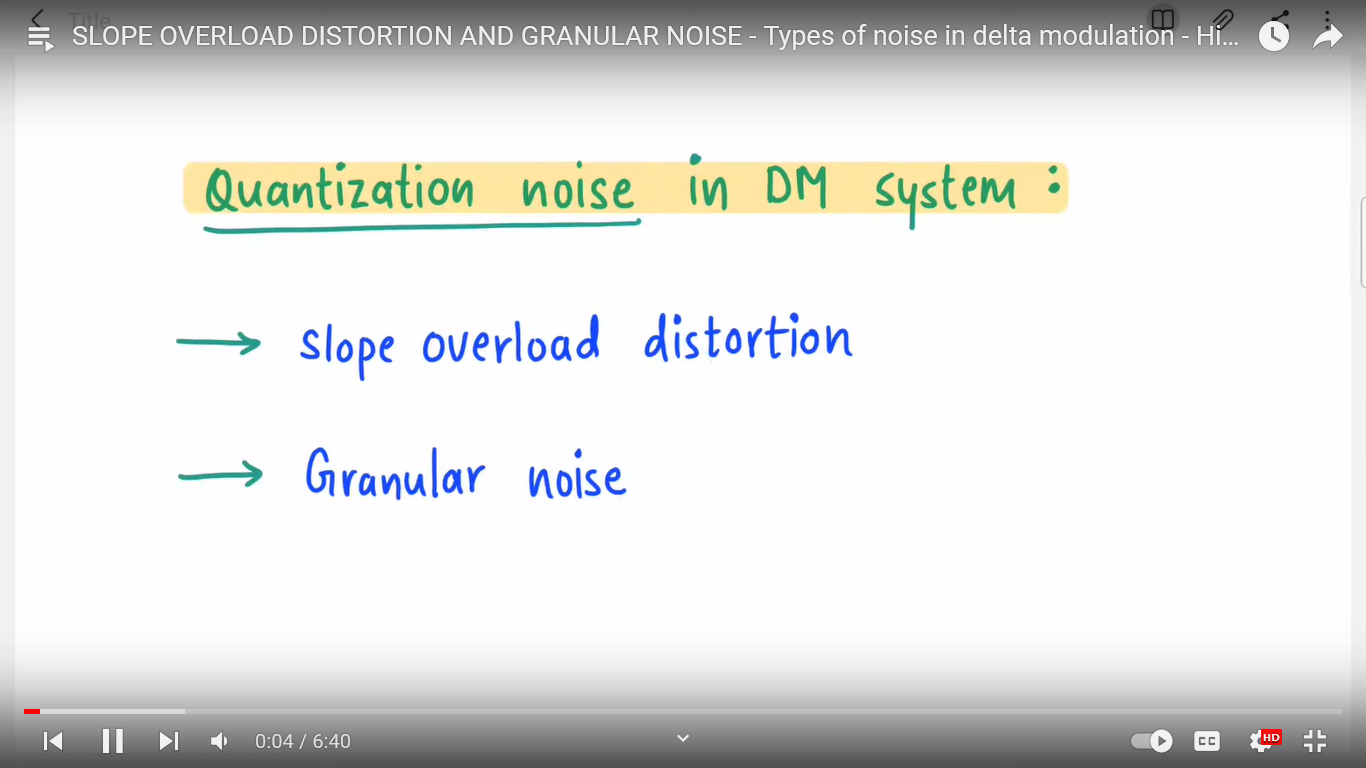 Title
SLOPE OVERLOAD DISTORTION AND GRANULAR NOISE - Types of noise in delta modulation - Hi...
Quantization noise in DM system :
→ slope overload distortion
→ Granular noise
0:04 / 6:40
CC
HD